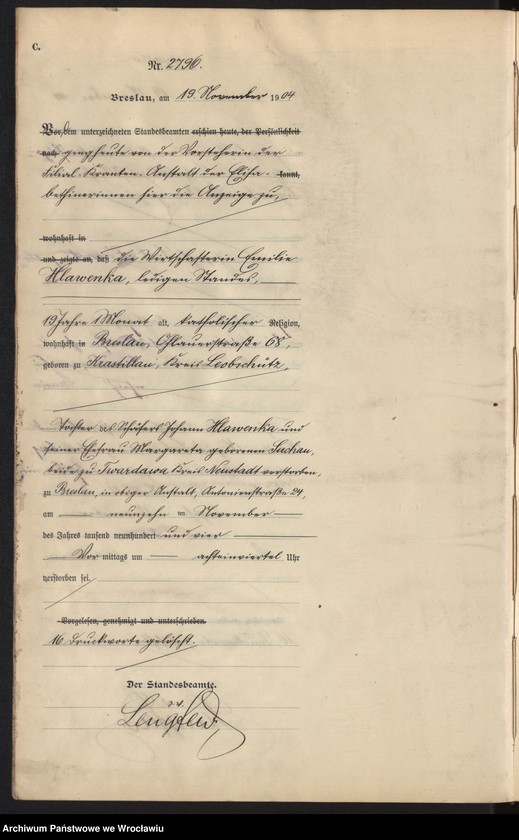 C.
Nr. 2796.
Breslau, am 19. November 1904
Vor dem unterzeichneten Standesbeamten erschien heute, der Persönlichkeit
nach ging heute von der Vorsteherin der
Filial-Kranken-Anstalt der Elisa- kannt,
bethinerinnen hier die Anzeige zu,
wohnhaft in
und zeigte an, daß die Wirtschafterin Emilie
Hlawenka, ledigen Standes,
19 Jahre 1 Monat alt, katholischer Religion,
wohnhaft in Breslau, Ohlauerstraße 68,
geboren zu Krastillau, Kreis Leobschütz,
Tochter des Schäfers Johann Hlawenka und
seiner Ehefrau Margareta geborenen Suchan,
beide zu Twardawa Kreis Neustadt verstorben,
zu Breslau, in obiger Anstalt, Antonienstraße 24,
am neunzehn ten November
des Jahres tausend neunhundert und vier
Vor mittags um achteinviertel Uhr
verstorben sei.
Vorgelesen, genehmigt und unterschrieben.
16 Druckworte gelöscht.
Der Standesbeamte.
Archiwum Państwowe we Wrocławiu